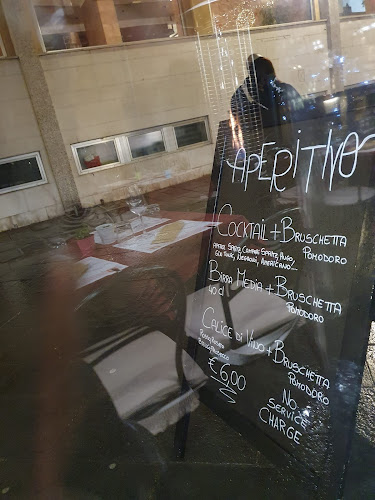 APERITIVO
COCKTAIL + BRUSCHETTA
POMODORO
APEROL SPRITZ, CAMPARI SPRITZ, HUGO
GIN TONIC, NEGRONI, AMERICANO...
BIRRA MEDIA + BRUSCHETTA
40 cl POMODORO
CALICE DI VINO + BRUSCHETTA
POMODORO
PROSECCO
€ 6,00
NO
SERVICE
CHARGE